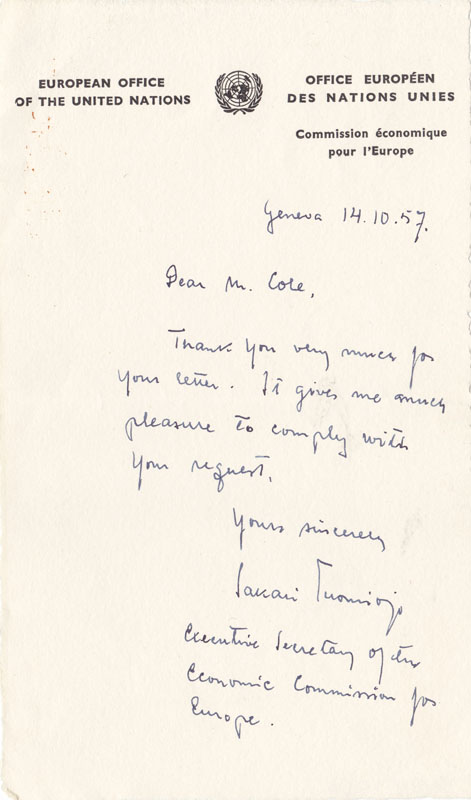 EUROPEAN OFFICE
OF THE UNITED NATIONS
OFFICE EUROPÉEN
DES NATIONS UNIES
Commission économique
pour l'Europe
Geneva 14.10.57.
Dear Mr. Cole,
Thank you very much for
your letter. It gives me much
pleasure to comply with
your request.
Yours sincerely
Sakari Tuomioja
Executive Secretary of the
Economic Commission for
Europe.